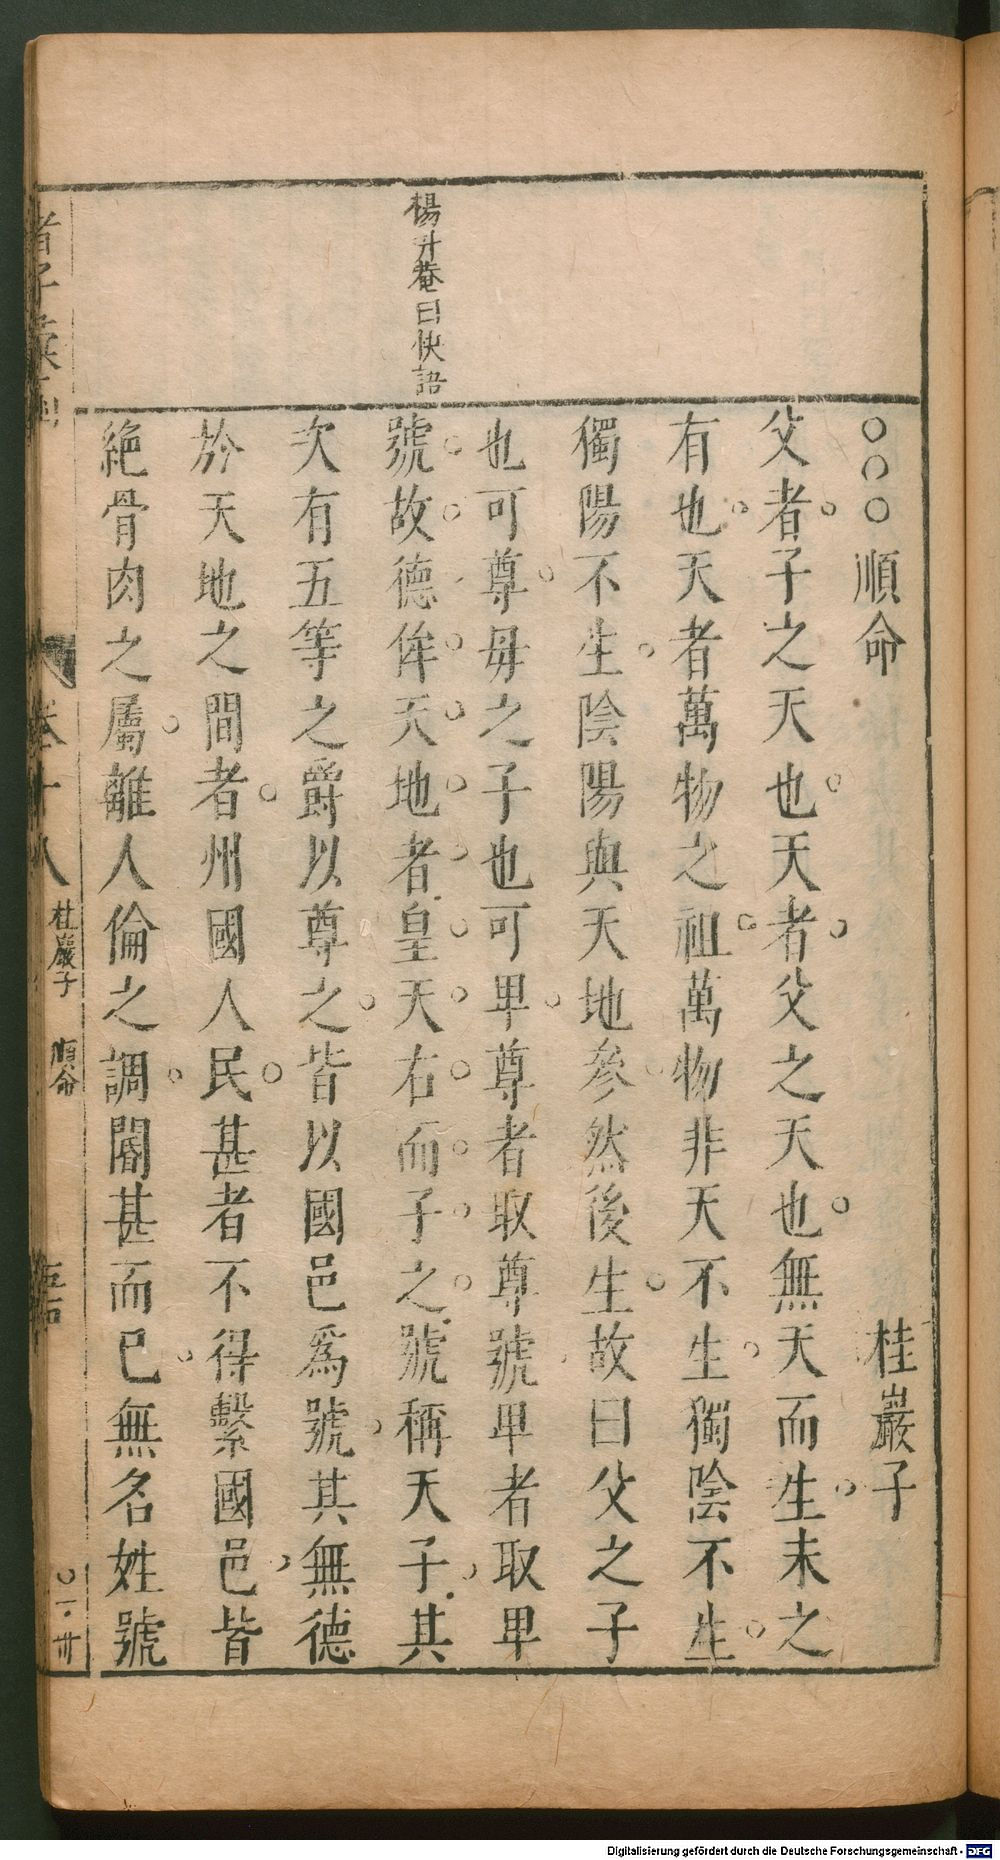 ○○○順命　桂巖子
父者子之天也天者父之天也無天而生未之
有也天者萬物之祖萬物非天不生獨陰不生
獨陽不生陰陽與天地參然後生故曰父之子
也可尊母之子也可卑尊者取尊號卑者取卑
楊升菴曰快語
號故德侔天地者皇天右而子之號稱天子其
次有五等之爵以尊之皆以國邑爲號其無德
於天地之間者州國人民甚者不得繫國邑皆
絶骨肉之屬離人倫之謂闇甚而已無名姓號
卷十八
桂巖子　順命
Digitalisierung gefördert durch die Deutsche Forschungsgemeinschaft - DFG